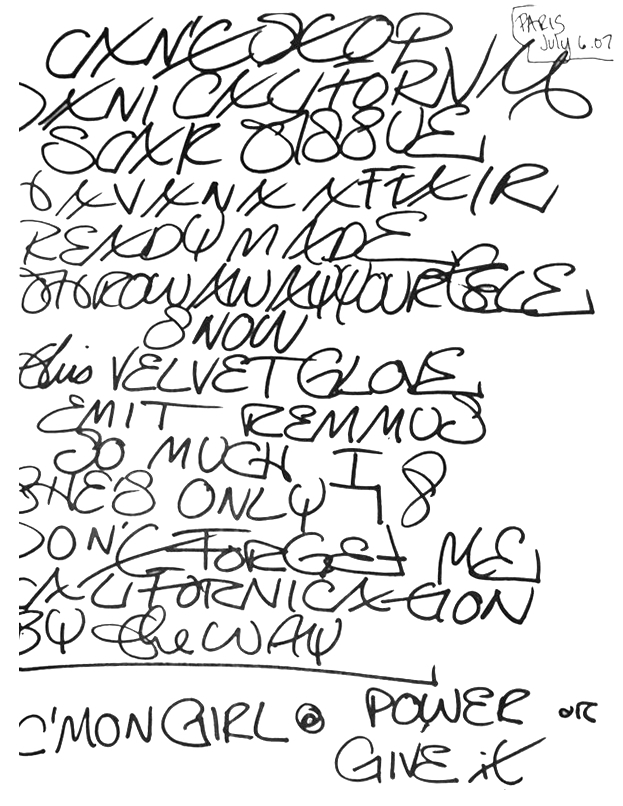 PARIS
July 6.07
CAN'T STOP
DANI CALIFORNIA
SCAR TISSUE
HAVANA AFFAIR
READYMADE
THROW AWAY YOUR TELE
SNOW
this VELVET GLOVE
EMIT REMMUS
SO MUCH I
SHE'S ONLY 18
DON'T FORGET ME
CALIFORNICATION
BY the WAY
C'MON GIRL @ POWER or
GIVE it